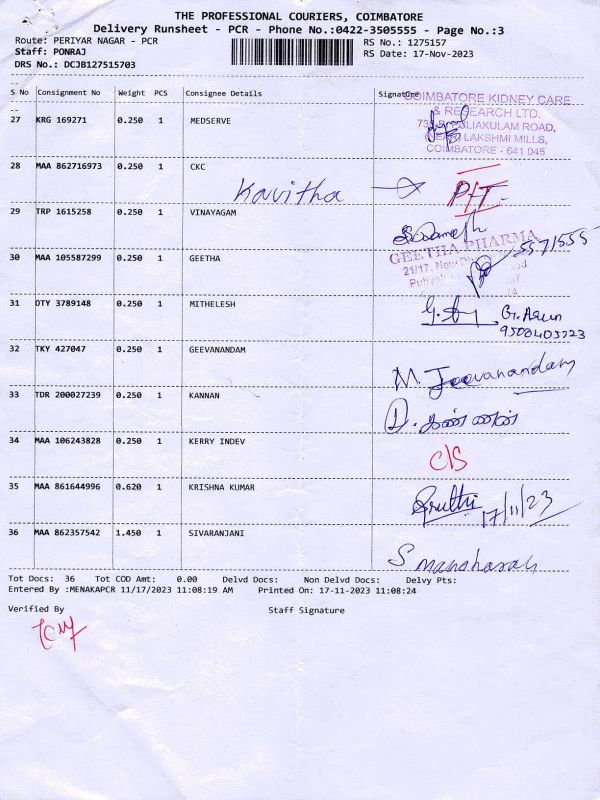 THE PROFESSIONAL COURIERS, COIMBATORE
Delivery Runsheet - PCR - Phone No.:0422-3505555 - Page No.:3
Route: PERIYAR NAGAR - PCR RS No.: 1275157
Staff: PONRAJ RS Date: 17-Nov-2023
DRS No.: DCJB127515703
S No Consignment No Weight PCS Consignee Details Signature
COIMBATORE KIDNEY CARE
& RESEARCH LTD.
27 KRG 169271 0.250 1 MEDSERVE
LAKSHMI MILLS,
COIMBATORE - 641 045
28 MAA 862716973 0.250 1 CKC
Kavitha
29 TRP 1615258 0.250 1 VINAYAGAM
GEETHA PHARMA
30 MAA 105587299 0.250 1 GEETHA
31 OTY 3789148 0.250 1 MITHELESH
G. Arun
32 TKY 427047 0.250 1 GEEVANANDAM
M. Jeevanandam
33 TDR 200027239 0.250 1 KANNAN
D. கண்ணன்
34 MAA 106243828 0.250 1 KERRY INDEV
C/S
35 MAA 861644996 0.620 1 KRISHNA KUMAR
Sruthi 17/11/23
36 MAA 862357542 1.450 1 SIVARANJANI
S manoharan
Tot Docs: 36 Tot COD Amt: 0.00 Delvd Docs: Non Delvd Docs: Delvy Pts:
Entered By :MENAKAPCR 11/17/2023 11:08:19 AM Printed On: 17-11-2023 11:08:24
Verified By Staff Signature